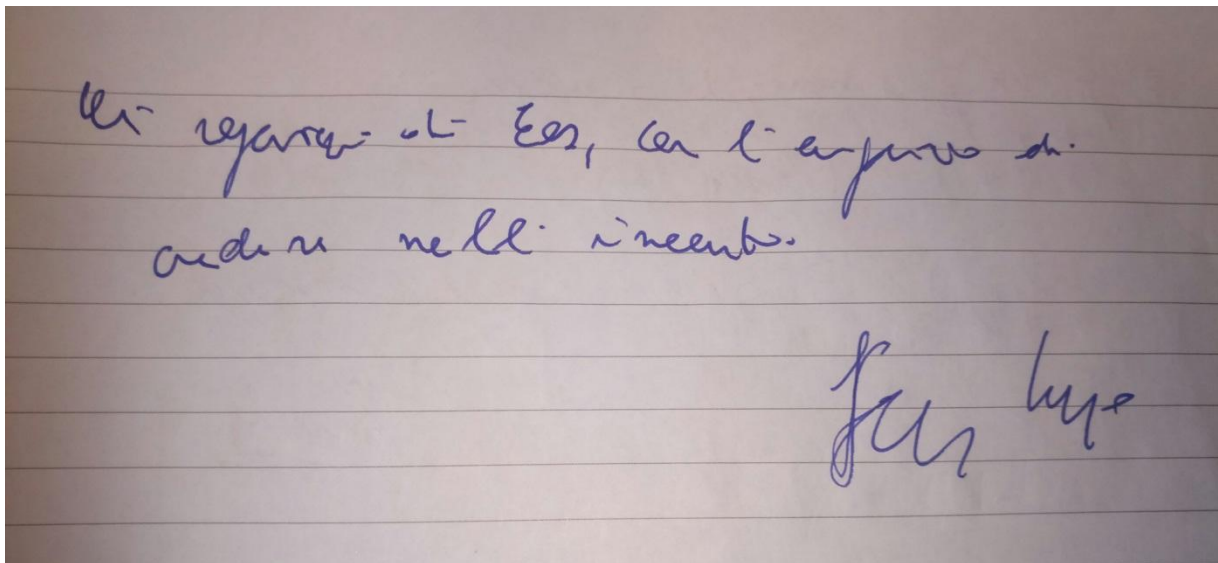 Ai ragazzi di Eos, con l'augurio di
credere nell' incanto.